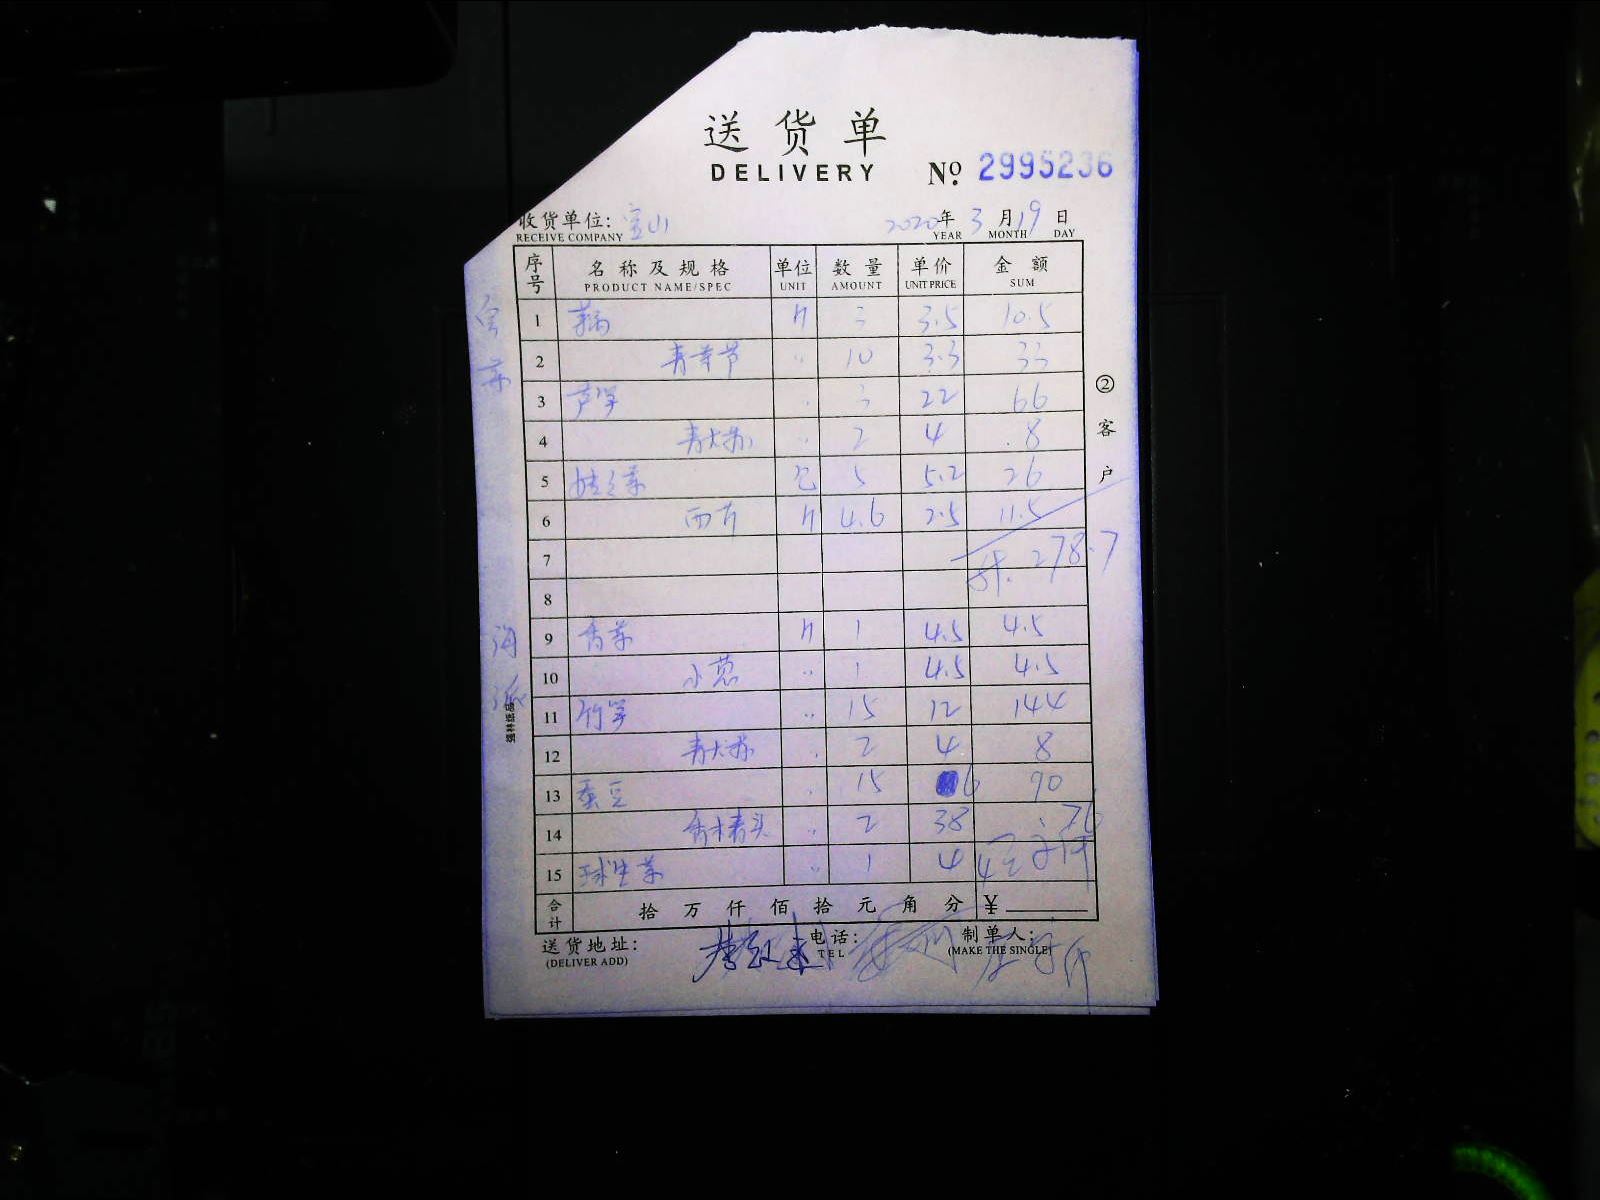 送货单
DELIVERY
№ 2995236
收货单位: 宝山
RECEIVE COMPANY
2020年 3月 19日
YEAR MONTH DAY
序号 名称及规格 单位 数量 单价 金额
PRODUCT NAME/SPEC UNIT AMOUNT UNIT PRICE SUM
1 三 3.5 10.5
2 10 3.3 33
3 芦笋 三 22 66
4 青大 2 4 8
5 娃娃菜 包 5 5.2 26
6 西芹 4.6 2.5 11.5
7 278.7
8
9 香菜 1 4.5 4.5
10 小葱 1 4.5 4.5
11 竹笋 15 12 144
12 青大 2 4 8
13 蚕豆 15 6 90
14 2 38 76
15 球生菜 1 4 4
合计 拾 万 仟 佰 拾 元 角 分 ¥
送货地址:
(DELIVER ADD)
电话:
TEL
制单人:
(MAKE THE SINGLE)
②客户